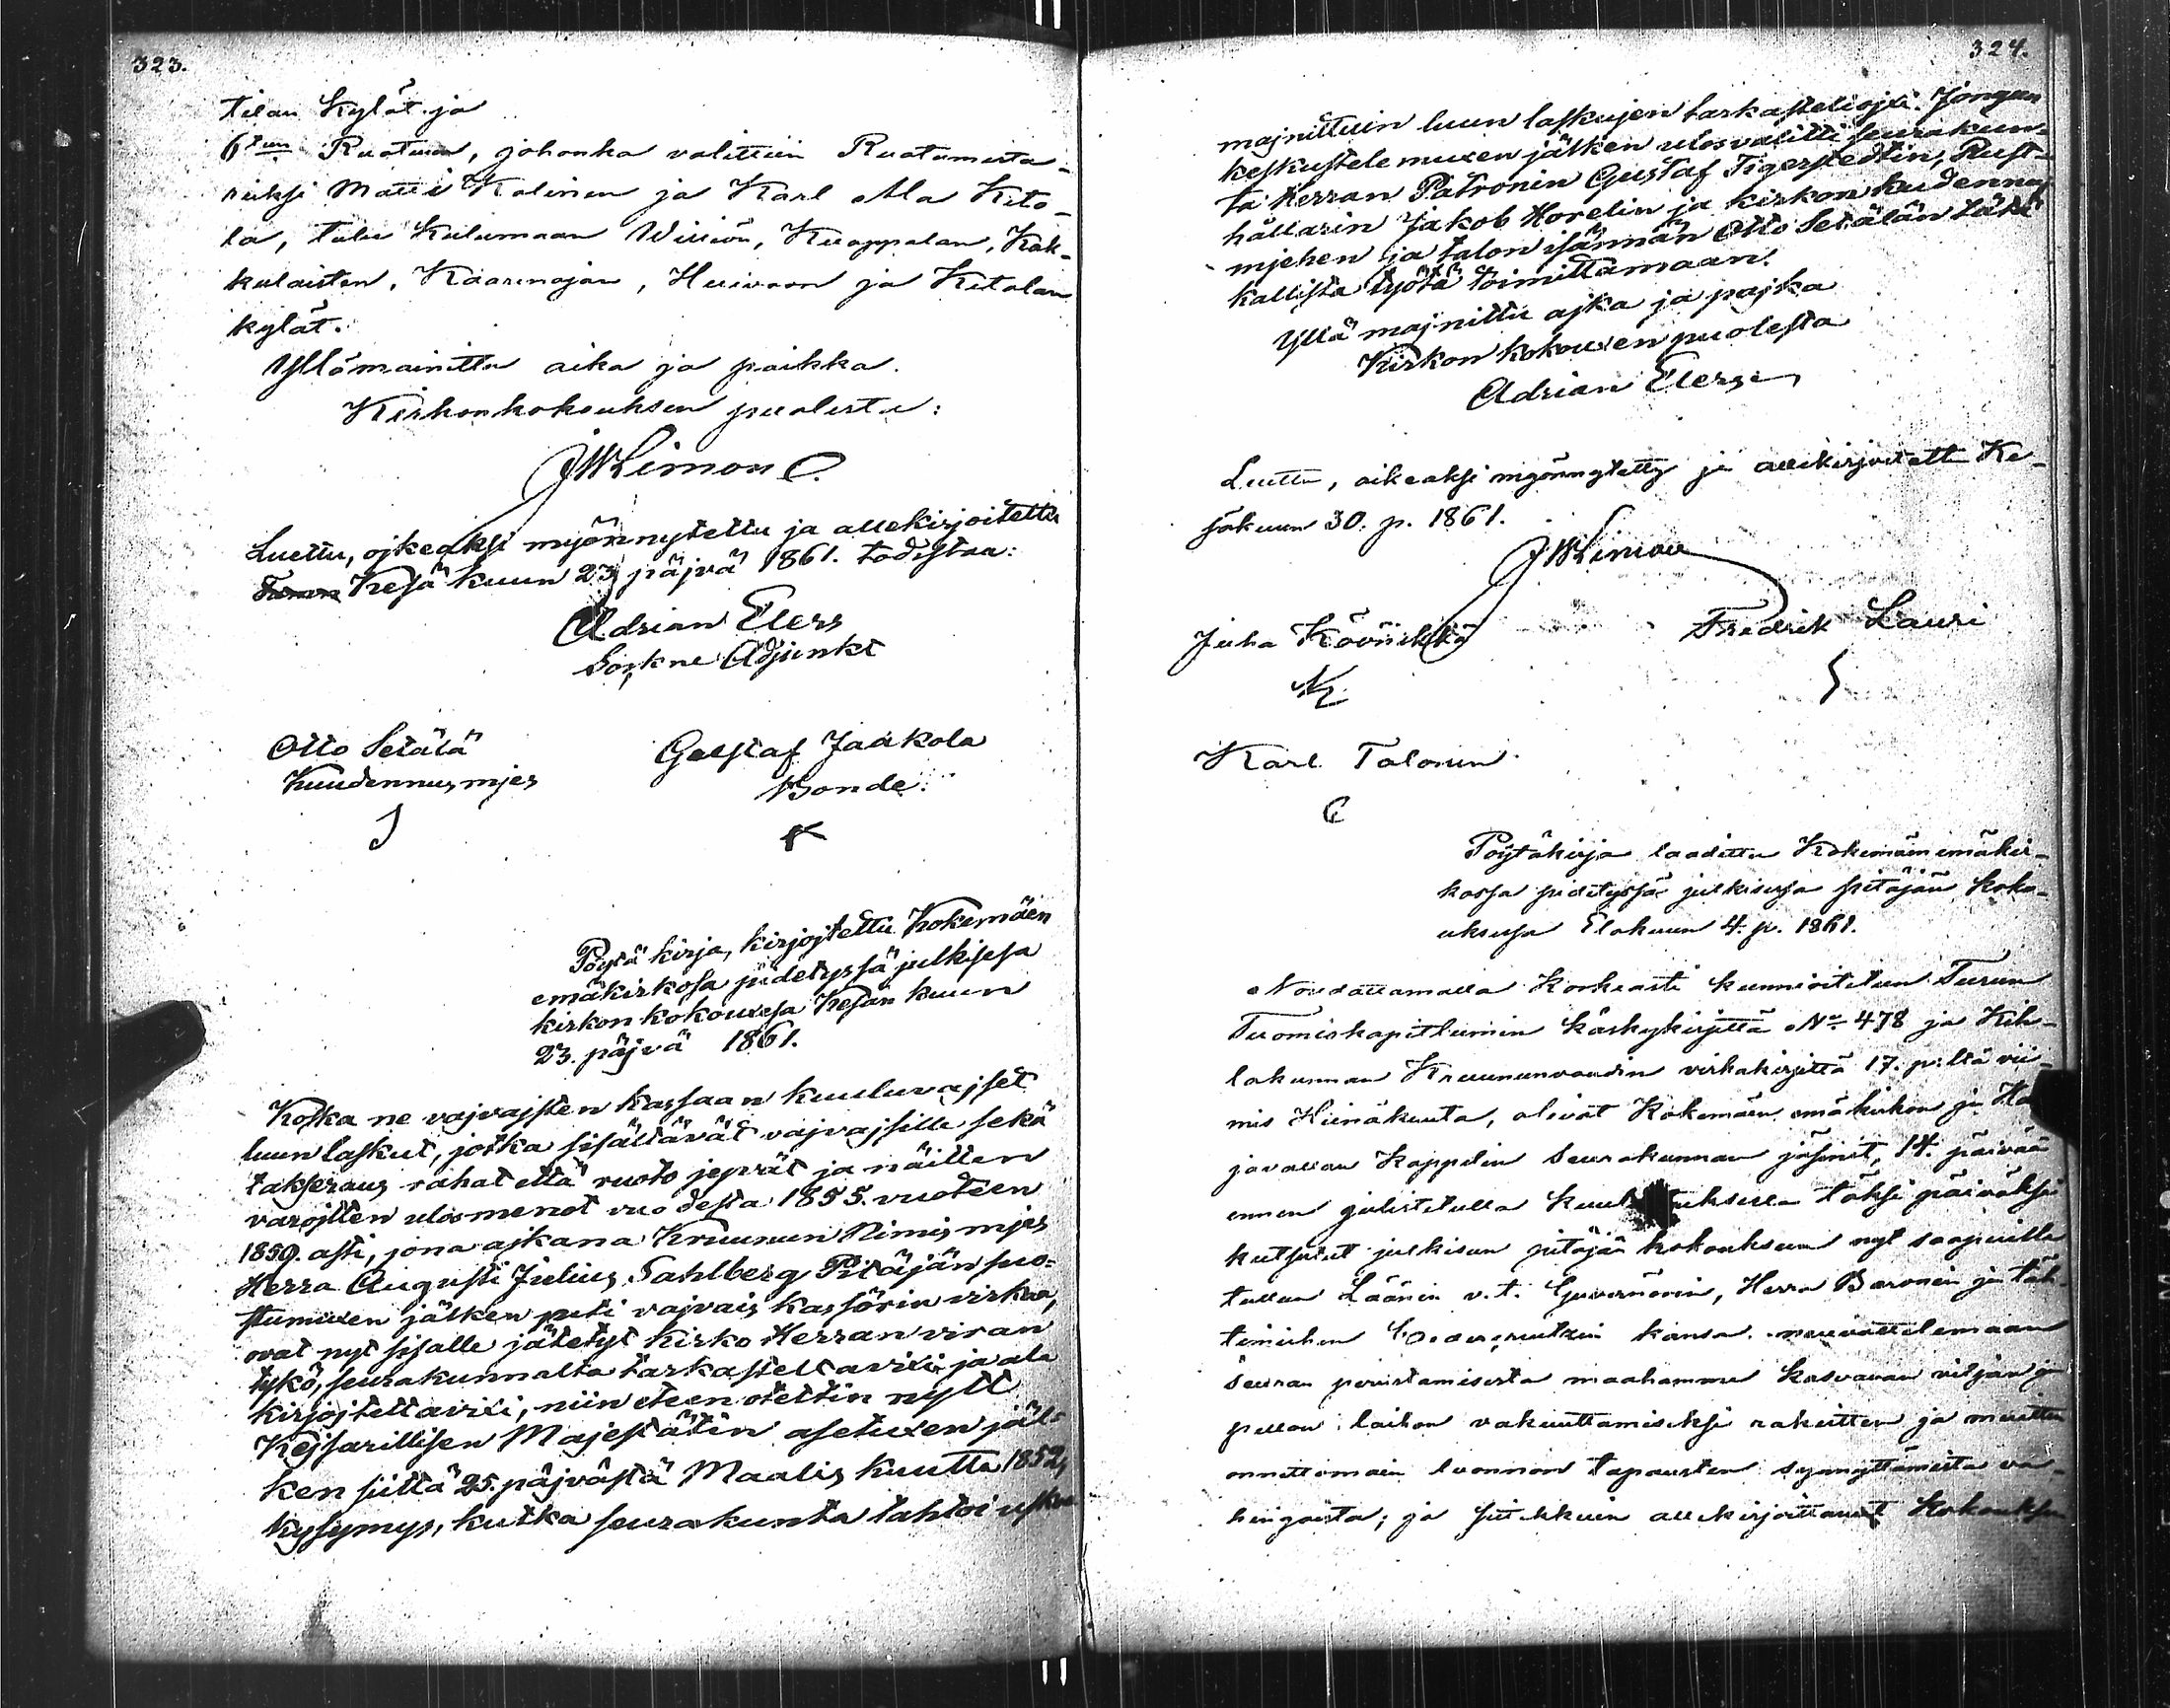 323.
tilan Kylät ja
6teen Ruotuun, johonka valittiin Ruotumesta-
riksi Matti Kalinen ja Karl Ala Kito-
la, tulee Kiilumaan Villiön, Kuoppalan, Kak-
kulaisten, Kaarenojan, Huivoon ja Kitolan
kylät.
Yllömainittu aika ja paikka.
Kirkonkokouksen puolesta:
JWLimon
Luettu, ojkeaksi myönnytettu ja allekirjoitettu
Kesä kuun 23 päjvä 1861. todistaa:
Adrian Elers
Sockne Adjunkt
Otto Setälä
Kuudennus mjes
Gustaf Jaakola
Bonde.
Pöytä kirja, kirjojtettu Kokemäen
emäkirkosa pidetyssä julkisesa
kirkon kokouxesa Kesän kuun
23. päjvä 1861.
Koska ne vajvajsten kassaan kuuluvajset
luun laskut, jotka sisältävät vajvajsille sekä
takseraus rahat että ruoto jyvät ja näitten
varojtten ulosmenot vuodesta 1855. vuoteen
1859. asti, jona ajkana Kruunun Nimis mjes
Herra Augusti Julius Sahlberg Pitäjän suo-
stumuxen jälken piti vajvais kassörin virkaa,
ovat nyt sisalle jätetyt Kirko Herran viran
tykö, seurakunnalta tarkasteltavixi ja ala
kirjojtettavixi, niin eteen otettin nytt
Kejsarillisen Majestätin asetuxen jäl-
ken siitä 25. päjvästä Maalis kuutta 1852,
kysymys, kutka seurakunta tahtoi usko
324.
majnittuin luun laskujen tarkasteliojxi. Jongun
keskustelemuxen jälken ulosvalitti seurakun-
ta Herran Patronin Gustaf Tigerstedtin, Rust-
hållarin Jakob Horelin ja kirkon kuudennus
mjehen ja talon isännän Otto Setälän tätä
kallista työtä toimittamaan.
Yllä majnittu ajka ja pajka
Kirkon kokouxen puolesta
Adrian Elers
Luettu, oikeaksi myönnytetty ja allekirjoitettu Ke-
säkuun 30. p. 1861.
JWLimon
Juha Köönikkä
Fredrik Lauri
Karl Talonen
Pöytäkirja laadittu Kokemäen emäkir-
kossa pidetyssä julkisessa pitäjän koko-
uksessa Elokuun 4. p. 1861.
Noudattamalla Korkeasti kunnioitetun Turun
Tuomiokapitlumin käskykirjettä No 478 ja Kih-
lakunnan Kruununvoudin virkakirjettä 17. p:ltä vii-
mis Heinäkuuta, olivat Kokemäen emäkirkon ja Ha
javallan Kappelin Seurakunnan jäsenet, 14. päivää
ennen julistetulla kuulutuksella täksi päiväksi
kutsutut julkisen pitäjän kokoukseen nyt saapuville
tulleen Läänin v.t. Guvernörin, Herra Baronin ja täh-
timiehen kansa neuvottelemaan
Seuran perustamisesta maahamme kasvavan viljan ja
pellon laihon vakuuttamiseksi rakeitten ja muitten
onnettomain luonnon tapausten synnyttämistä va-
hingoista; ja sittekkuin allekirjoittanut Kokouksen